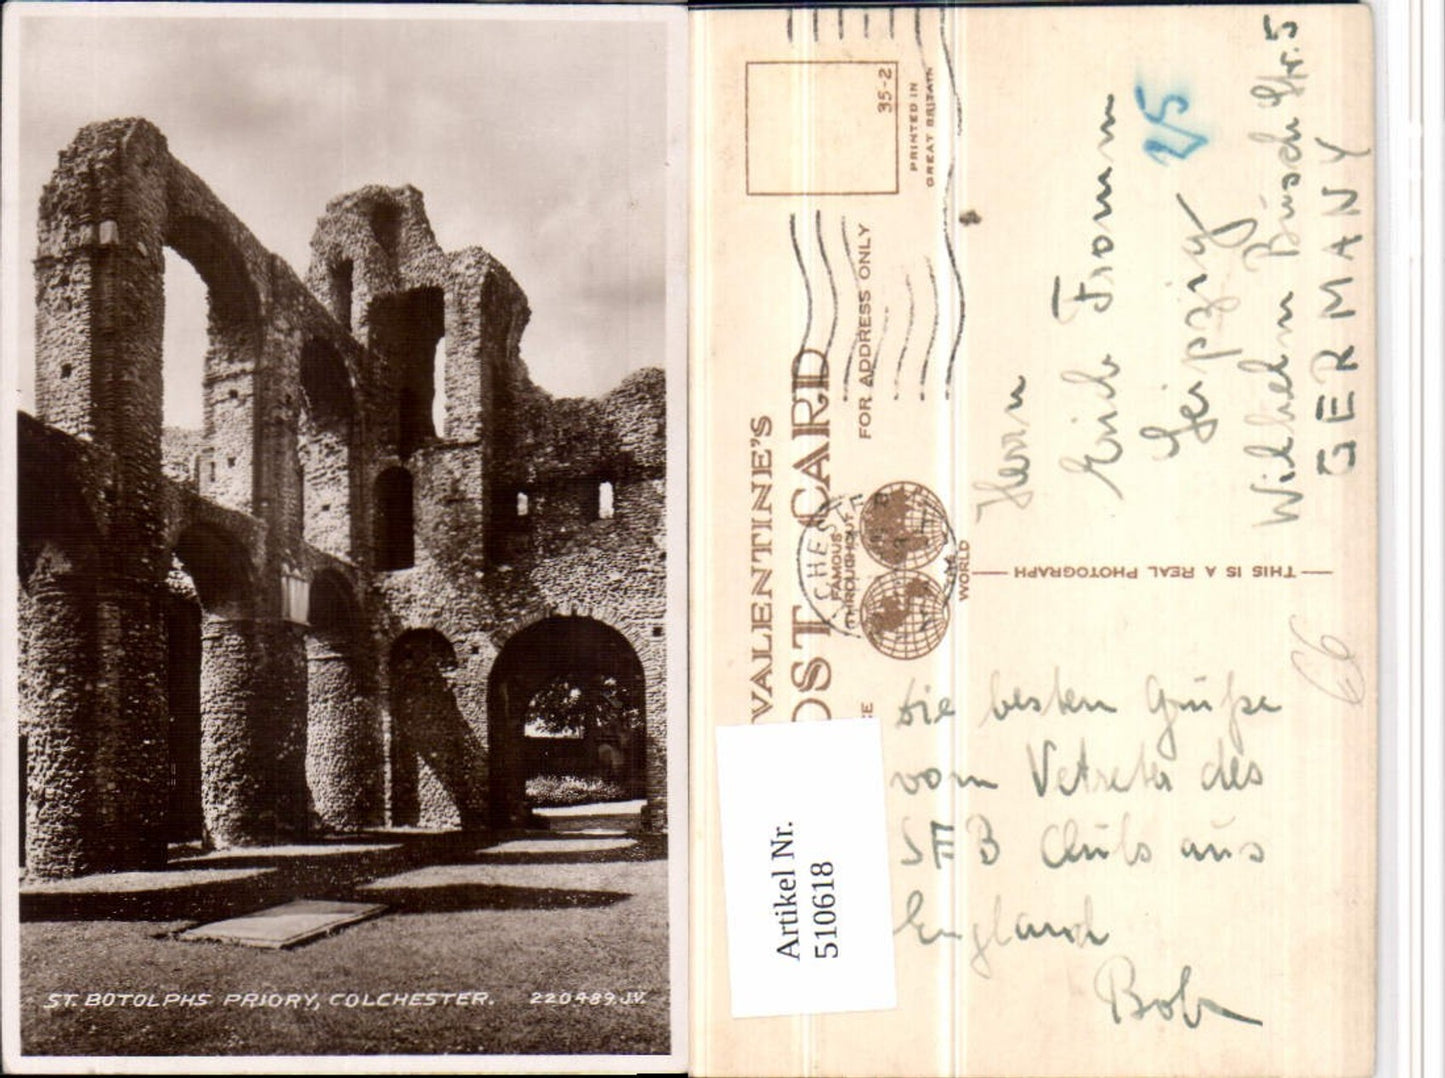 ST. BOTOLPHS PRIORY, COLCHESTER. 220489.J.V.
VALENTINE'S
OST CARD
FOR ADDRESS ONLY
35-2
PRINTED IN
GREAT BRITAIN
FAMOUS
THROUGHOUT
WORLD
CHES
THIS IS A REAL PHOTOGRAPH
Artikel Nr.
510618
die besten Grüße
vom Vetreter des
Club aus
England
Bob
Herrn
Erich Fromm
Leipzig
25
Wilhelm Busch Str. 5
GERMANY
66